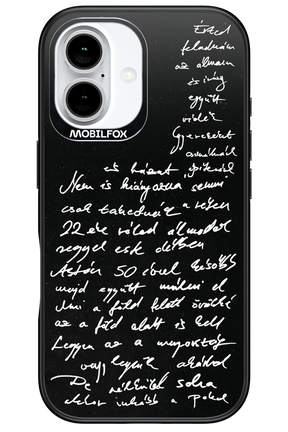 Érted
feladnám
az álmaim
és így
együtt
Gyerekeket
MOBILFOX
és házat építenél
Nem is hiányozna semmi
csak takaródnék a réten
22 én nálad álmodok
reggel esk délben
Aztán 50 évvel később
majd együtt múlni el
Mi a föld felett örökké
az a föld alatt is kell
Legyen az a menyország
vagy legyünk akárhol
De nélküled soha
akkor inkább a Pokol